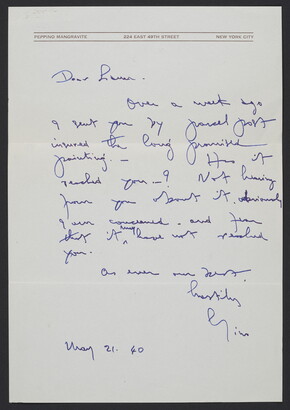 PEPPINO MANGRAVITE 224 EAST 49TH STREET NEW YORK CITY
Dear
Over a week ago
I sent you by parcel post
insured the long promised
painting. — Has it
reached you —? Not hearing
from you about it, obviously
I am concerned – and fear
that it may have not reached
you.
As ever our best.
Hastily
Gino
May 21. 40